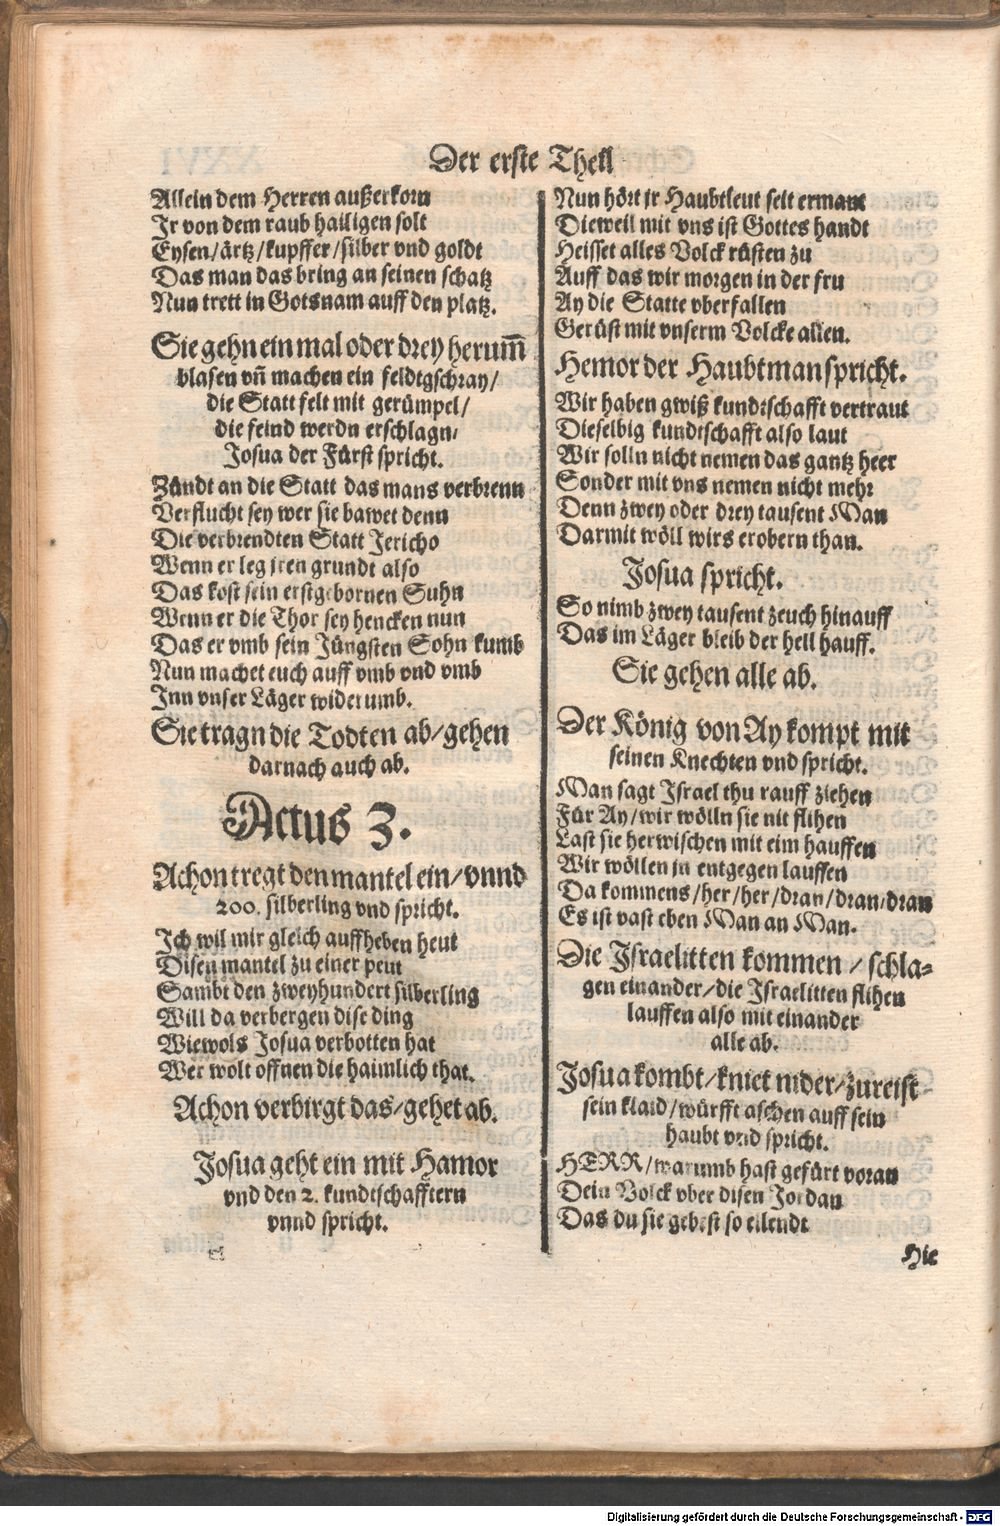 Der erste Theil
Allein dem Herren außerkorn
Jr von dem raub hailigen solt
Eysen/ärtz/kupffer/silber vnd goldt
Das man das bring an seinen schatz
Nun trett in Gotsnam auff den platz.
Sie gehn ein mal oder drey herum̄
blasen vn̄ machen ein feldtgschray/
die Statt felt mit gerümpel/
die feind werdn erschlagn/
Josua der Fürst spricht.
Zündt an die Statt das mans verbrenn
Verflucht sey wer sie bawet denn
Die verbrendten Statt Jericho
Wenn er leg jren grundt also
Das kost sein erstgebornen Suhn
Wenn er die Thor sey hencken nun
Das er vmb sein Jüngsten Sohn kumb
Nun machet euch auff vmb vnd vmb
Inn vnser Läger widerumb.
Sie tragn die Todten ab/gehen
darnach auch ab.
Actus 3.
Achon tregt den mantel ein/vnnd
200. silberling vnd spricht.
Ich wil mir gleich auffheben heut
Disen mantel zu einer peut
Sambt den zweyhundert silberling
Will da verbergen dise ding
Wiewols Josua verbotten hat
Wer wolt offnen die haimlich that.
Achon verbirgt das/gehet ab.
Josua geht ein mit Hamor
vnd den 2. kundtschafftern
vnnd spricht.
Nun hört jr Haubtleut seit ermant
Dieweil mit vns ist Gottes handt
Heisset alles Volck rüsten zu
Auff das wir morgen in der fru
Ay die Statte vberfallen
Gerüst mit vnserm Volcke allen.
Hemor der Haubtman spricht.
Wir haben gwiß kundtschafft vertraut
Dieselbig kundtschafft also laut
Wir solln nicht nemen das gantz heer
Sonder mit vns nemen nicht mehr
Denn zwey oder drey tausent Man
Darmit wöll wirs erobern than.
Josua spricht.
So nimb zwey tausent zeuch hinauff
Das im Läger bleib der hell hauff.
Sie gehen alle ab.
Der König von Ay kompt mit
seinen Knechten vnd spricht.
Man sagt Israel thu rauff ziehen
Für Ay/wir wölln sie nit flihen
Last sie herwischen mit eim hauffen
Wir wöllen jn entgegen lauffen
Da kommens/her/her/dran/dran/dran
Es ist vast eben Man an Man.
Die Israelitten kommen/schla-
gen einander/die Israelitten flihen
lauffen also mit einander
alle ab.
Josua kombt/kniet nider/zureist
sein klaid/würfft aschen auff sein
haubt vnd spricht.
HERR/warumb hast gefürt voran
Dein Volck vber disen Jordan
Das du sie gebest so eilendt
Hie
Digitalisierung gefördert durch die Deutsche Forschungsgemeinschaft - DFG